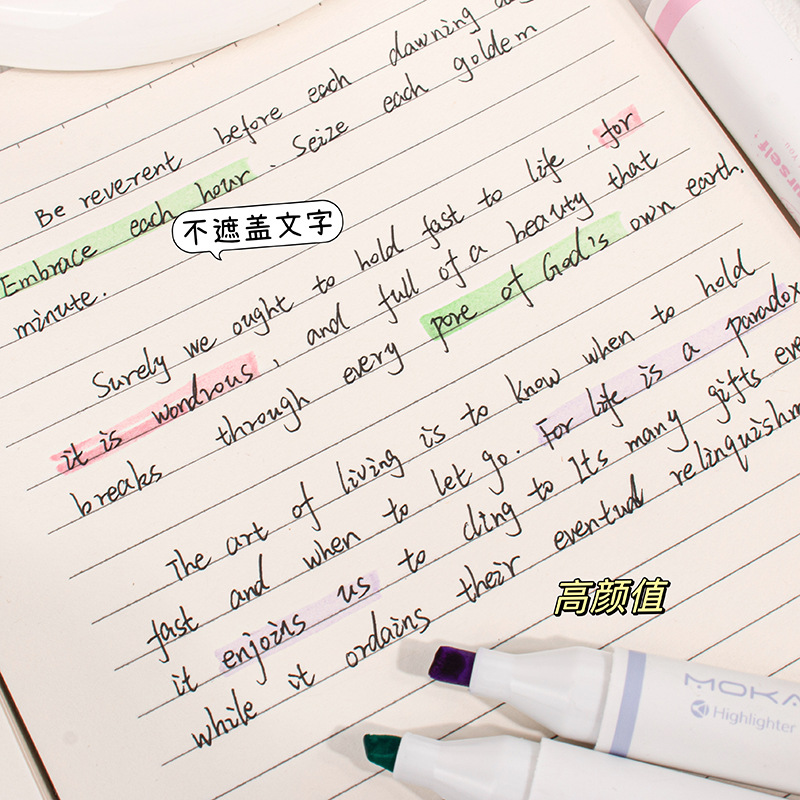 Be reverent before each dawning
Embrace each hour. Seize each goldem
minute.
不遮盖文字
Surely we ought to hold fast to life. for
it is wondrous, and full of a beauty that
breaks through every pore of God's own earth.
The art of living is to know when to hold
fast and when to let go. For life is a paradox
it enjoins us to cling to Its many gifts eve
while it ordains their eventual relinquishm
高颜值
MOKA
Highlighter
urself
YOU